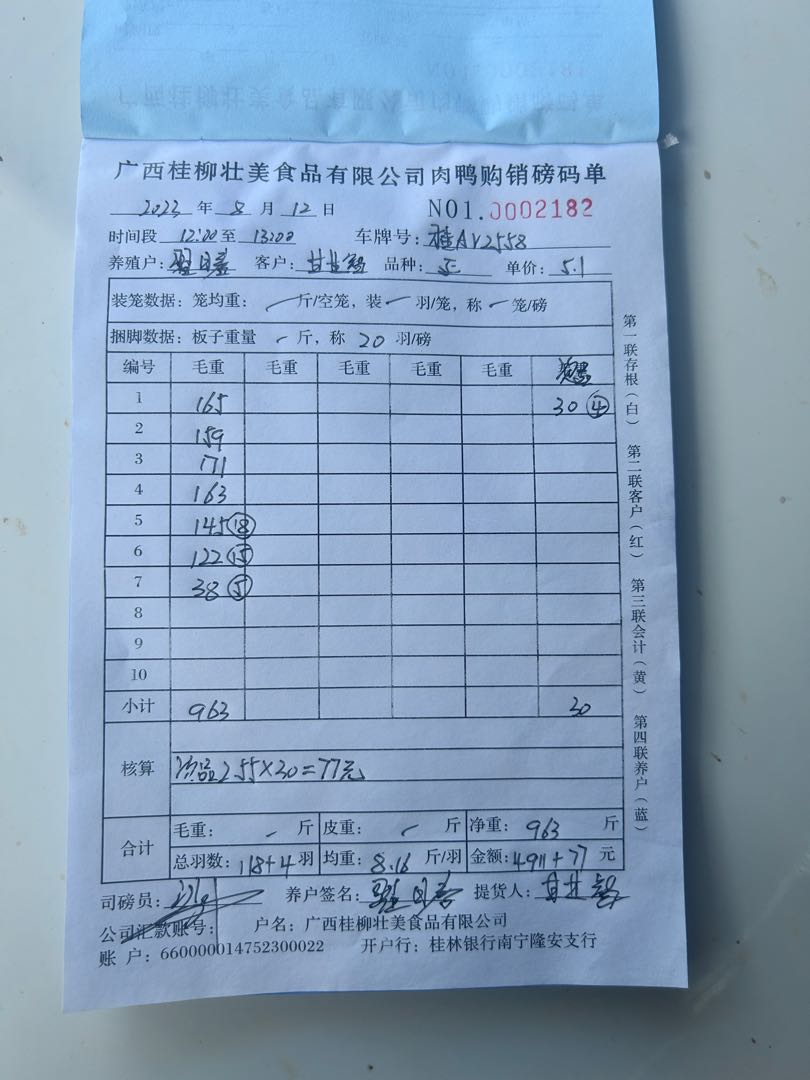 广西桂柳壮美食品有限公司肉鸭购销磅码单
2023 年 8 月 12 日 NO1.0002182
时间段 12:00 至 13:00 车牌号: 桂AV2558
养殖户: 客户: 甘 品种: 单价: 5.1
装笼数据: 笼均重: 斤/空笼, 装 羽/笼, 称 笼/磅
捆脚数据: 板子重量 斤, 称 20 羽/磅
编号 毛重 毛重 毛重 毛重 毛重
1 165 30 ④
2 159
3 171
4 163
5 145 ⑱
6 122 ⑮
7 38 ⑤
8
9
10
小计 963 30
核算 次品 2.55×30=77元
合计 毛重: 斤 皮重: 斤 净重: 963 斤
总羽数: 118+4 羽 均重: 8.16 斤/羽 金额: 4911+77 元
司磅员: 养户签名: 提货人: 甘
公司汇款账号: 户名: 广西桂柳壮美食品有限公司
账 户: 660000014752300022 开户行: 桂林银行南宁隆安支行
第一联存根(白) 第二联客户(红) 第三联会计(黄) 第四联养户(蓝)